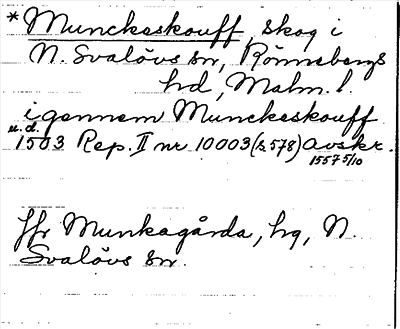 *Munckeskouff, skog i
N. Svalövs sn, Rönnebergs
hd, Malm. l.
igennem Munckeskouff
u.d.
1503 Rep. II nr 10003 (s 578) avskr.
1557 5/10
Jfr Munkagårda, hg, N.
Svalövs sn.